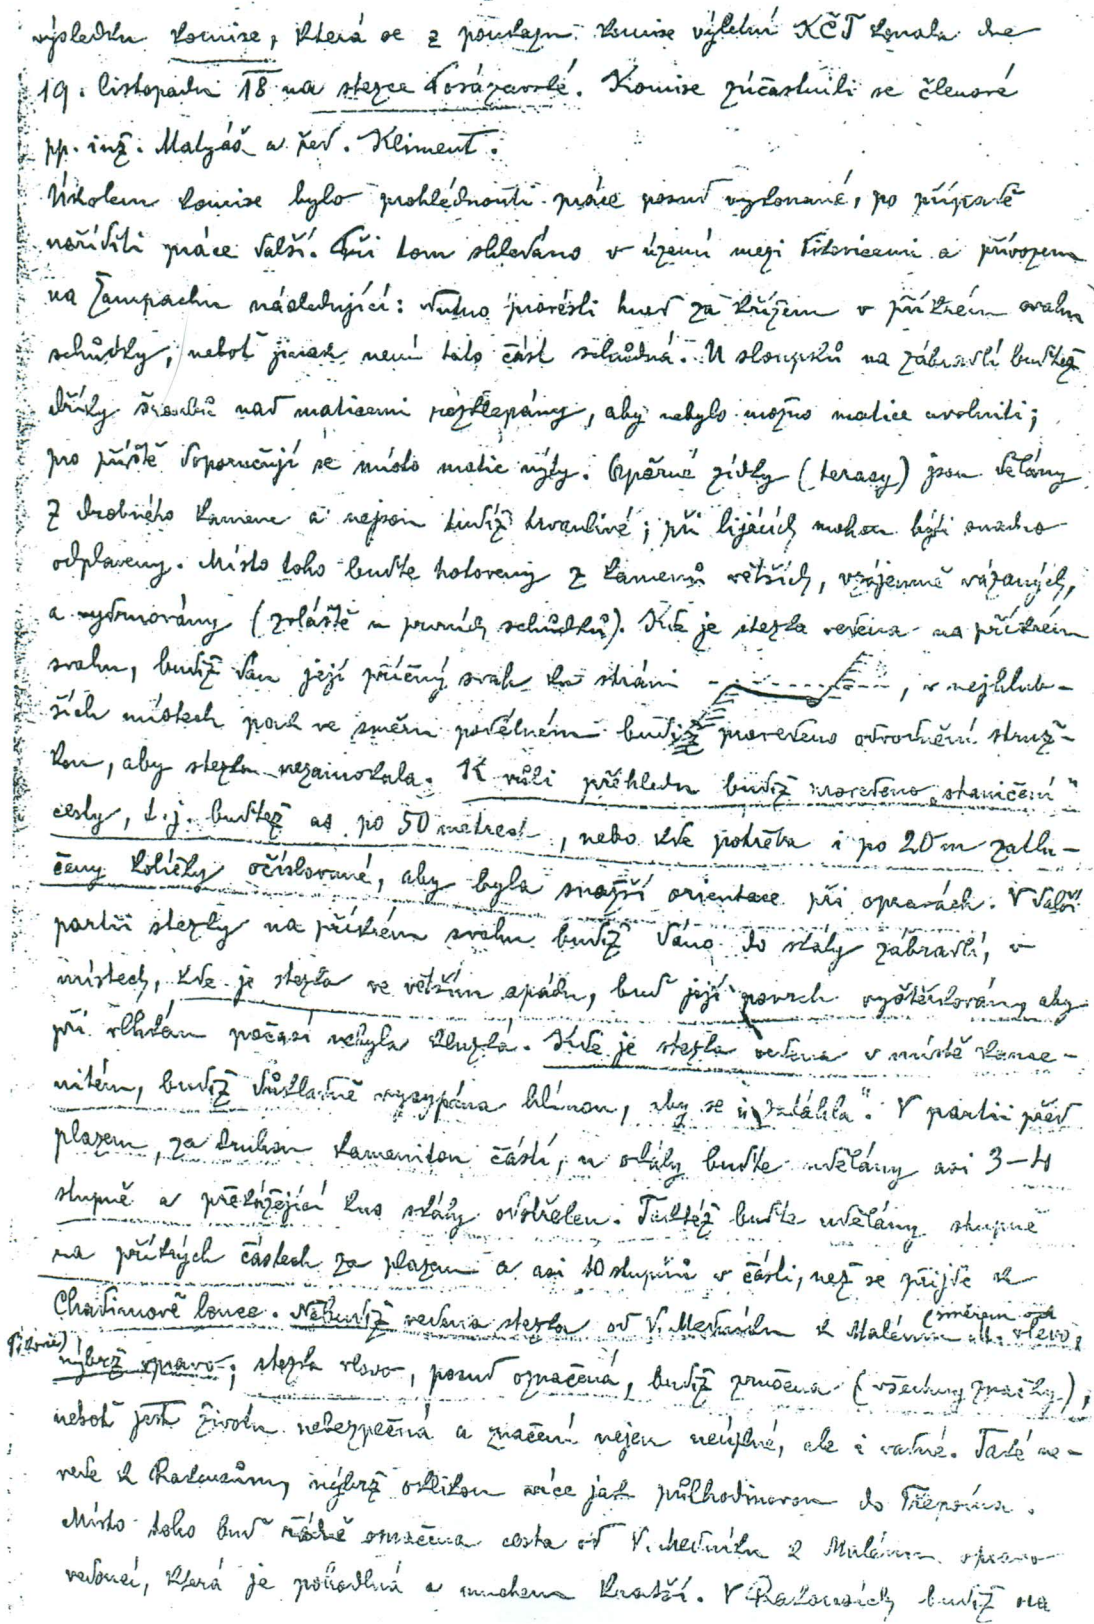 výsledku komise, která se z poukazu komise výletní KČT konala dne
19. listopadu 18 na stezce Posázavské. Komise zúčastnili se členové
pp. inž. Matyáš a řed. Kliment.
Úkolem komise bylo prohlédnouti práce posud vykonané, po případě
naříditi práce další. Při tom shledáno v území mezi Pikovicemi a přívozem
na Žampachu následující: Nutno provésti hned za křížem v příkrém svahu
schůdky, neboť jinak není tato část schůdná. U sloupků na zábradlí buďtež
dříky šroubů nad maticemi rozklepány, aby nebylo možno matice uvolniti;
pro příště doporučují se místo matic nýty. Opěrné zídky (terasy) jsou dělány
z drobného kamene a nejsou tudíž trvanlivé; při lijácích mohou býti snadno
odplaveny. Místo toho buďte hotoveny z kamenů větších, vzájemně vázaných,
a vydrnovány (zvláště u prvních schůdků). Kde je stezka vedena na příkrém
svahu, budiž dán její příčný svah ke stráni , v nejhlub-
ších místech pak ve směru podélném budiž provedeno odvodnění struž-
kou, aby stezka nezamokala. K vůli přehledu budiž provedeno „staničení"
cesty, t.j. buďtež as po 50 metrech, nebo kde potřeba i po 20 m zatlu-
čeny kolíčky očíslované, aby byla snazší orientace při opravách. V další
partii stezky na příkrém svahu budiž dáno do skály zábradlí, v
místech, kde je stezka ve větším spádu, buď její povrch vyštěrkován, aby
při vlhkém počasí nebyla kluzká. Kde je stezka vedena v místě kame-
nitém, budiž důkladně vysypána hlínou, aby se „zatáhla". V partii před
plazem, za druhou kamenitou částí, u skály buďte udělány asi 3–4
stupně a překážející kus skály odstřelen. Taktéž buďte udělány stupně
na příkrých částech za plazem a asi 10 stupňů v části, než se přijde k
Chadimově louce. Nebudiž vedena stezka od V. Medníku k Malému vlevo,
(směrem od
Pikovic)
nýbrž vpravo; stezka vlevo, posud označená, budiž zrušena (všechny značky),
neboť jest životu nebezpečná a značení nejen neúplné, ale i vadné. Také ne-
vede k Rakousům, nýbrž oklikou více jak půlhodinovou do Třepsína.
Místo toho buď řádně označena cesta od V. Medníku k Malému vpravo
vedoucí, která je pohodlná a mnohem kratší. V Rakousích budiž na